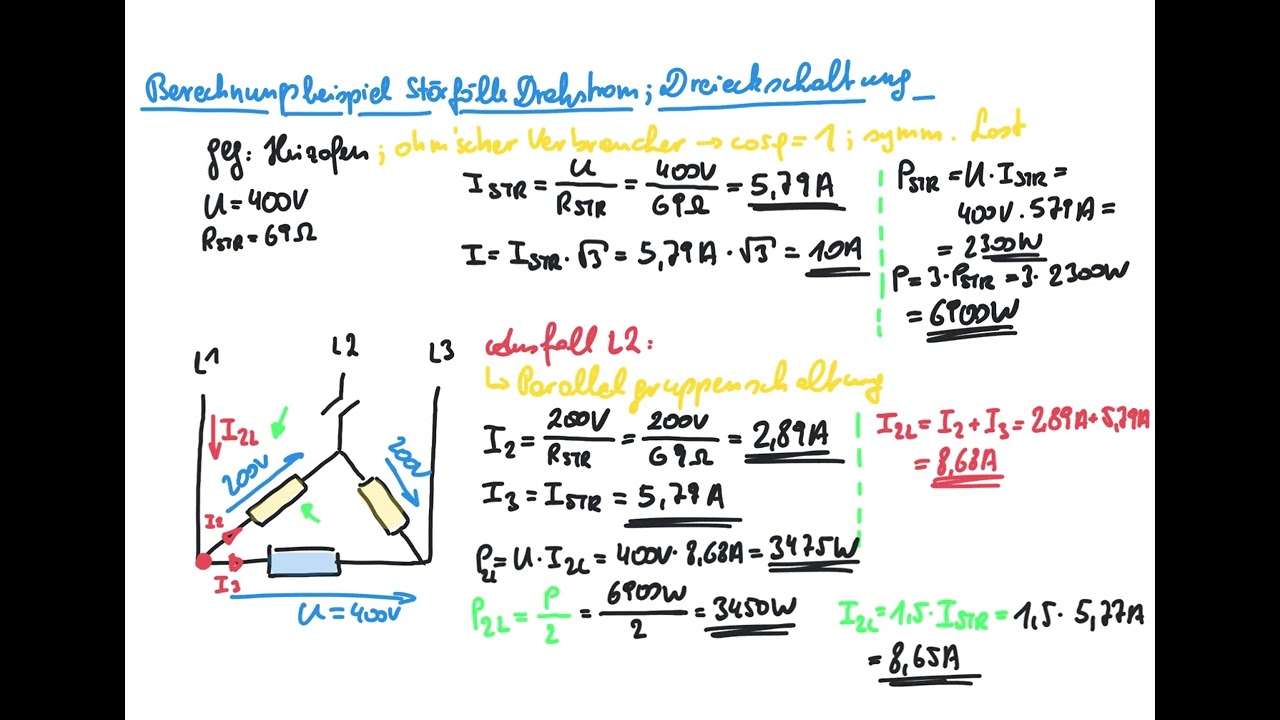 Berechnungsbeispiel Störfälle Drehstrom; Dreieckschaltung
geg: Heizofen; ohm'scher Verbraucher → cosφ = 1; symm. Last
U = 400V
RSTR = 69Ω
ISTR = U/RSTR = 400V/69Ω = 5,79A
I = ISTR · √3 = 5,79A · √3 = 10A
PSTR = U · ISTR =
400V · 579A =
= 2300W
P = 3 · PSTR = 3 · 2300W
= 6900W
L1
L2
L3
I2L
200V
200
I2
R
I3
U = 400V
Ausfall L2:
↳ Parallelgruppenschaltung
I2 = 200V/RSTR = 200V/69Ω = 2,89A
I3 = ISTR = 5,79A
I2L = I2 + I3 = 2,89A + 5,79A
= 8,68A
P2L = U · I2L = 400V · 8,68A = 3475W
P2L = P/2 = 6900W/2 = 3450W
I2L = 1,5 · ISTR = 1,5 · 5,77A
= 8,65A